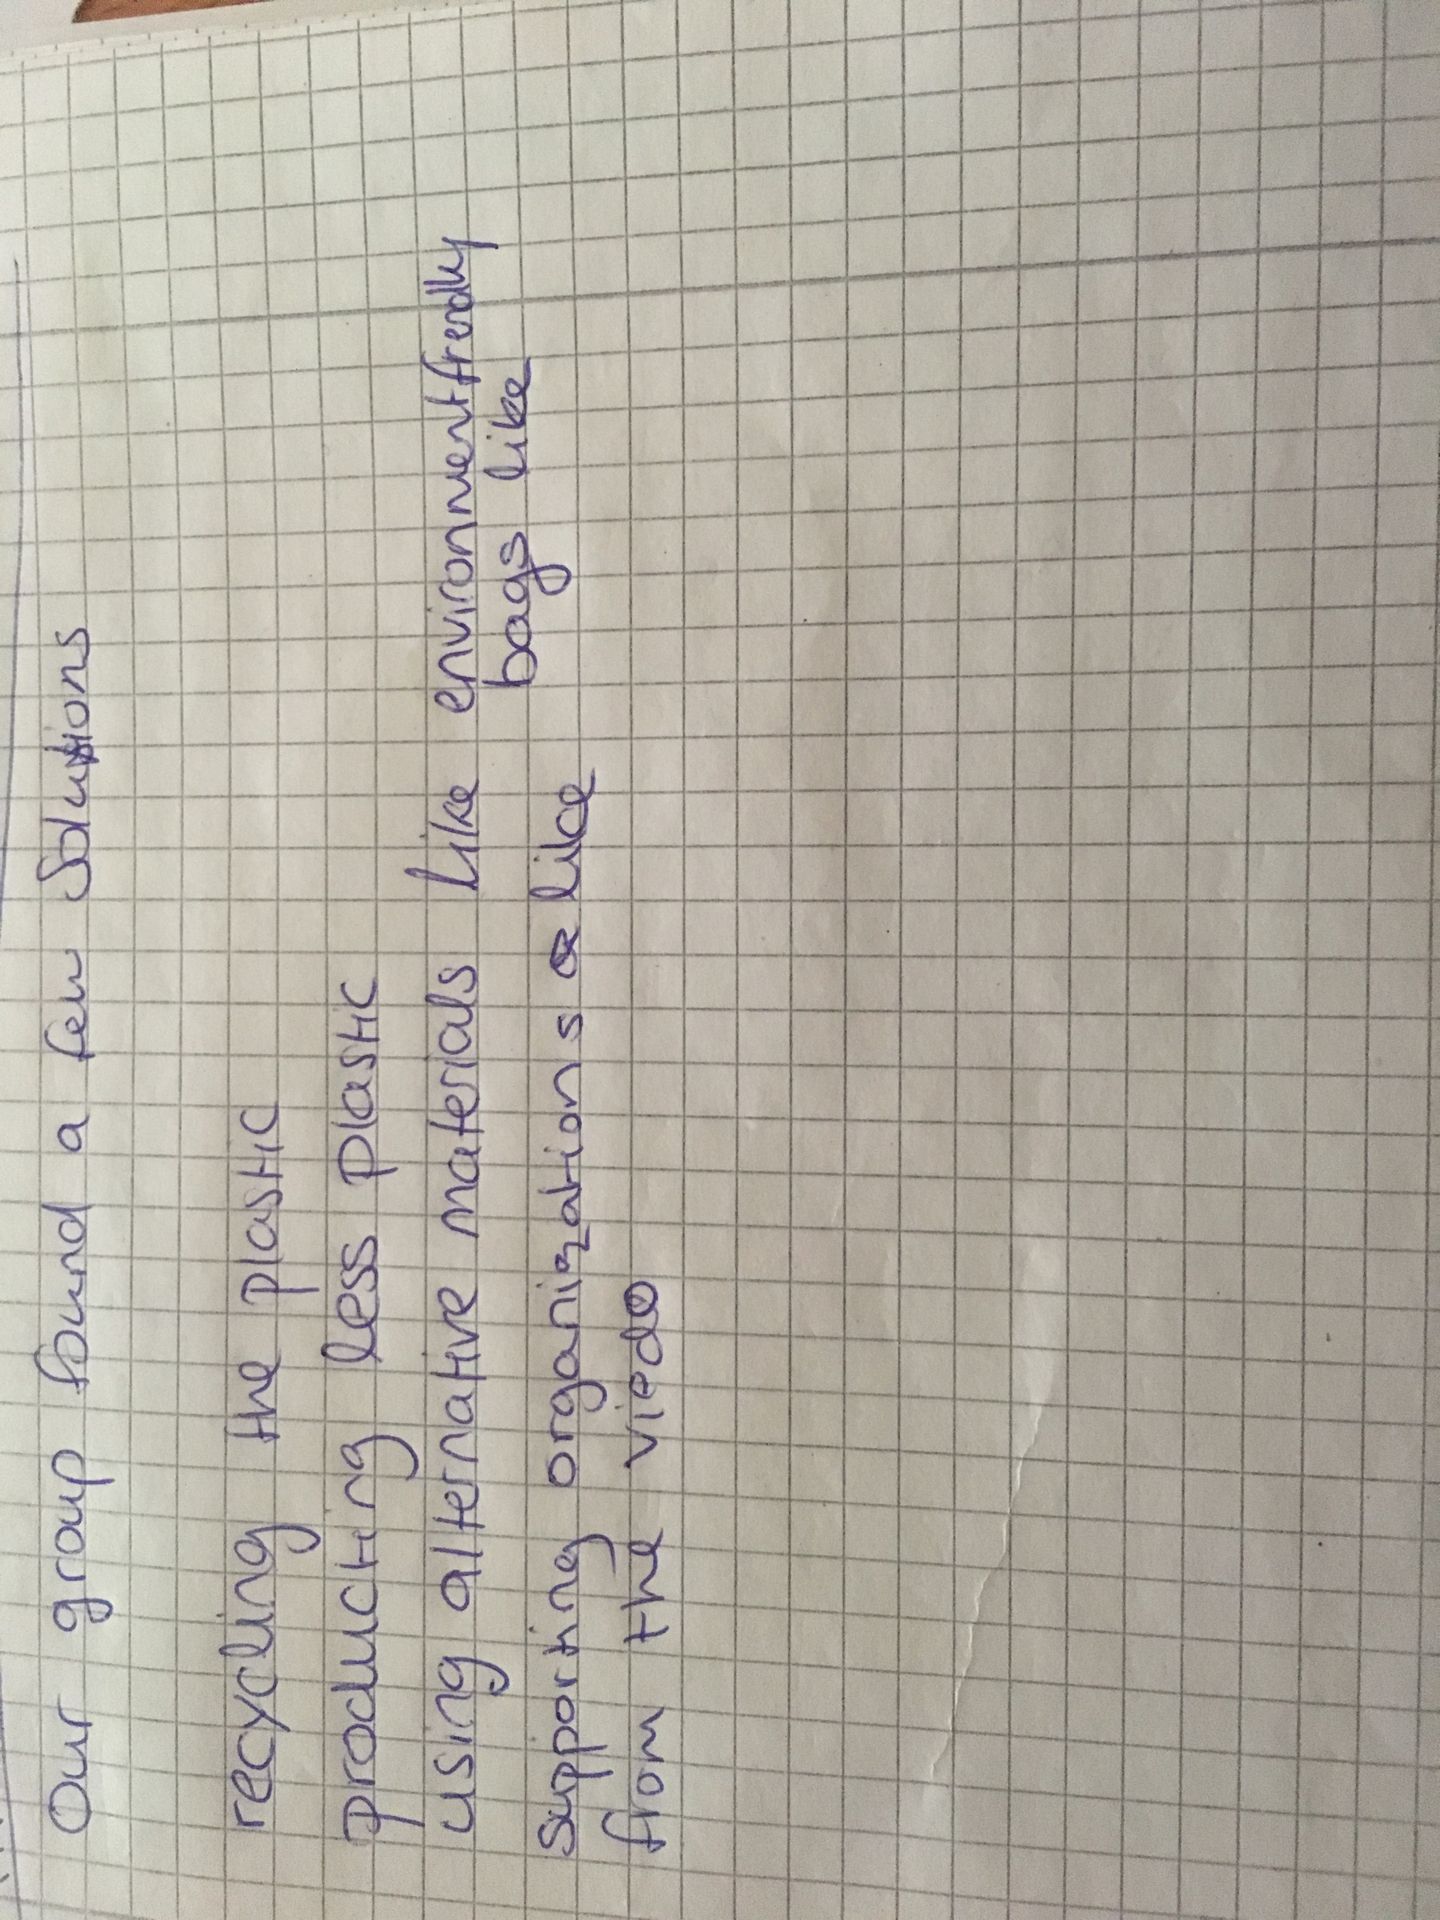 Our group found a few Solutions
recycling the plastic
producting less plastic
using alternative materials Like environmentfrendly
bags like
supporting organizations like
from the viedo